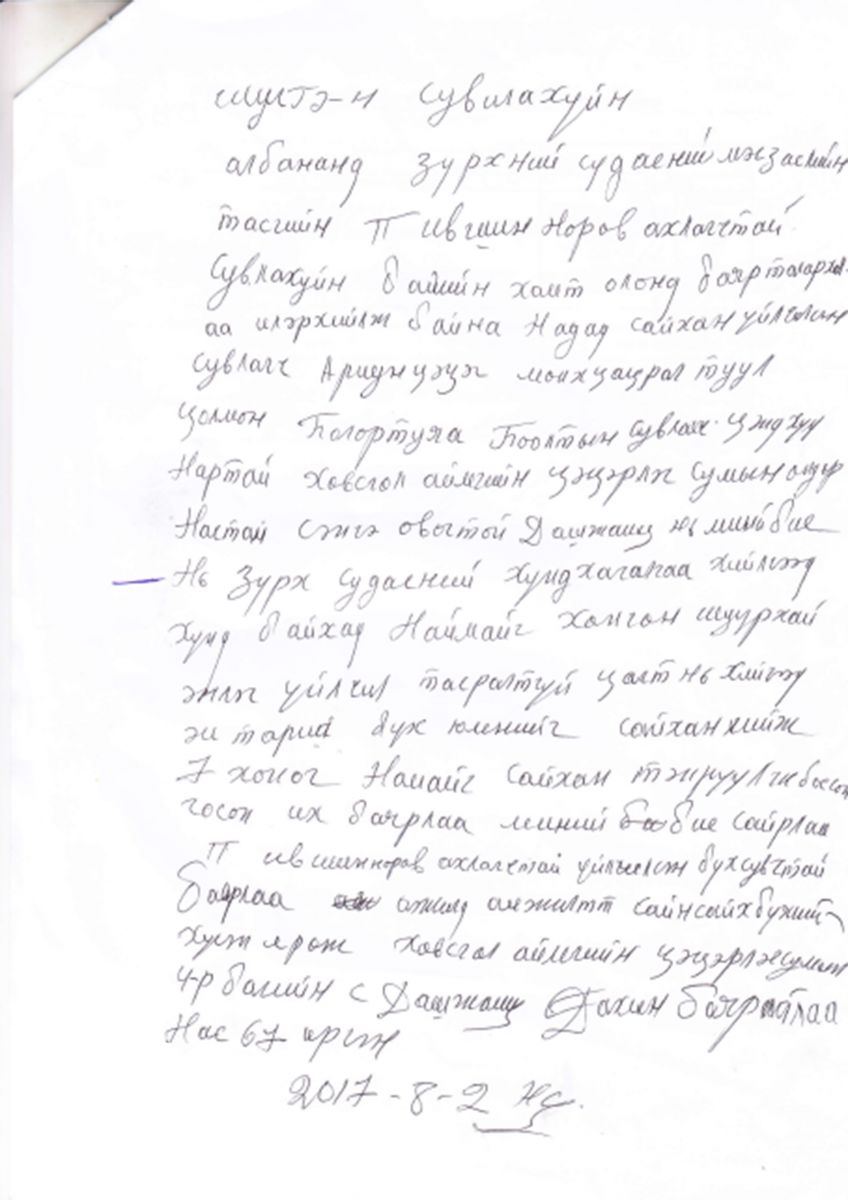 шштэ-н сувилахуйн
албананд зурхний судасний мэс заслийн
тасгийн П ившин норов ахлагчтай
сувлахуйн багийн хамт олонд баярталархал
аа илэрхийлж байна Надад сайхан үйлчилсэн
сувлагч Ариунцэцэг мөнхцацрал туул
цолмон Гогортуяа Гоолтын сувлагч цэндхүү
Нартай ховсгол аймгийн цэцэрлэг сумын
Настай сэнгэ овогтой Дашжамц нь миний бие
Нь Зурх судасний хүнд хагалгаа хийлгээд
Хүнд байхад Намайг хонгон шуурхай
энлэг үйлчил тасралтгүй цагт нь хийгээд
эм тариа бүх юмнийг сайхан хийж
7 хоног Намайг сайхан тэнрүүлж босон
госон их баярлаа миний бие сайрлаа
П ившин норов ахлагчтай үйлчилсэн бүх сувчтай
баярлаа ажилд амжилтт сайн сайх бүхний
хүсж ероож ховсгол аймгийн цэцэрлэг сумын
4-р багийн с Дашжамц Дахин баярлалаа
Нас 67 иргэн
2017-8-2 нд.